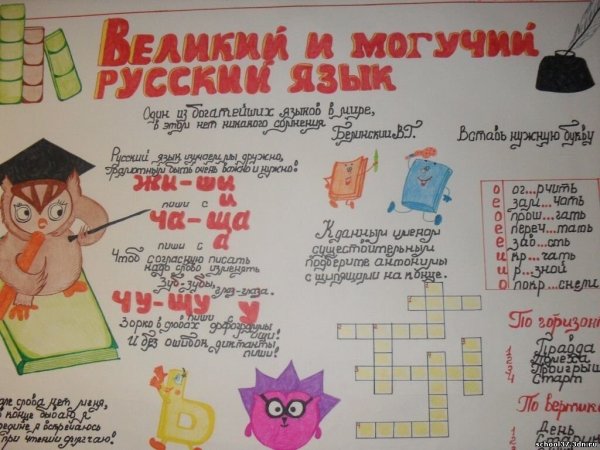 Великий и могучий
русский язык
Один из богатейших языков в мире,
в этом нет никакого сомнения
Белинский В.Г.
Русский язык изучаем мы дружно,
грамотным быть очень важно и нужно!
жи-ши
пиши с и
ча-ща
пиши с а
Чтоб согласную писать
надо слово изменять
Зуб-зубы,
глаз-глаза.
чу-щу у
пиши
Зорко в словах орфограммы
ищи!
И без ошибок диктанты
пиши!
Вставь нужную букву
о
е
о
е
о
е
и
о
ог...рчить
зам...чать
прош...гать
переч...тать
заб...сть
кр...чать
р...зной
покр...снели
К данным именам
существительным
подберите антонимы
с шипящими на конце.
По горизон
1 Правда
2
3 Проигрыш
4 Старт
По вертик
1 День
2 Старин
слова нет меня,
конце бываю я
встречаюсь
при чтении
Ь
school37.3dn.ru